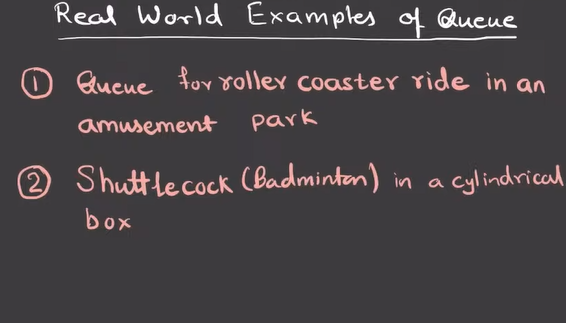 Real World Examples of Queue
① Queue for roller coaster ride in an
amusement park
② Shuttlecock (Badminton) in a cylindrical
box